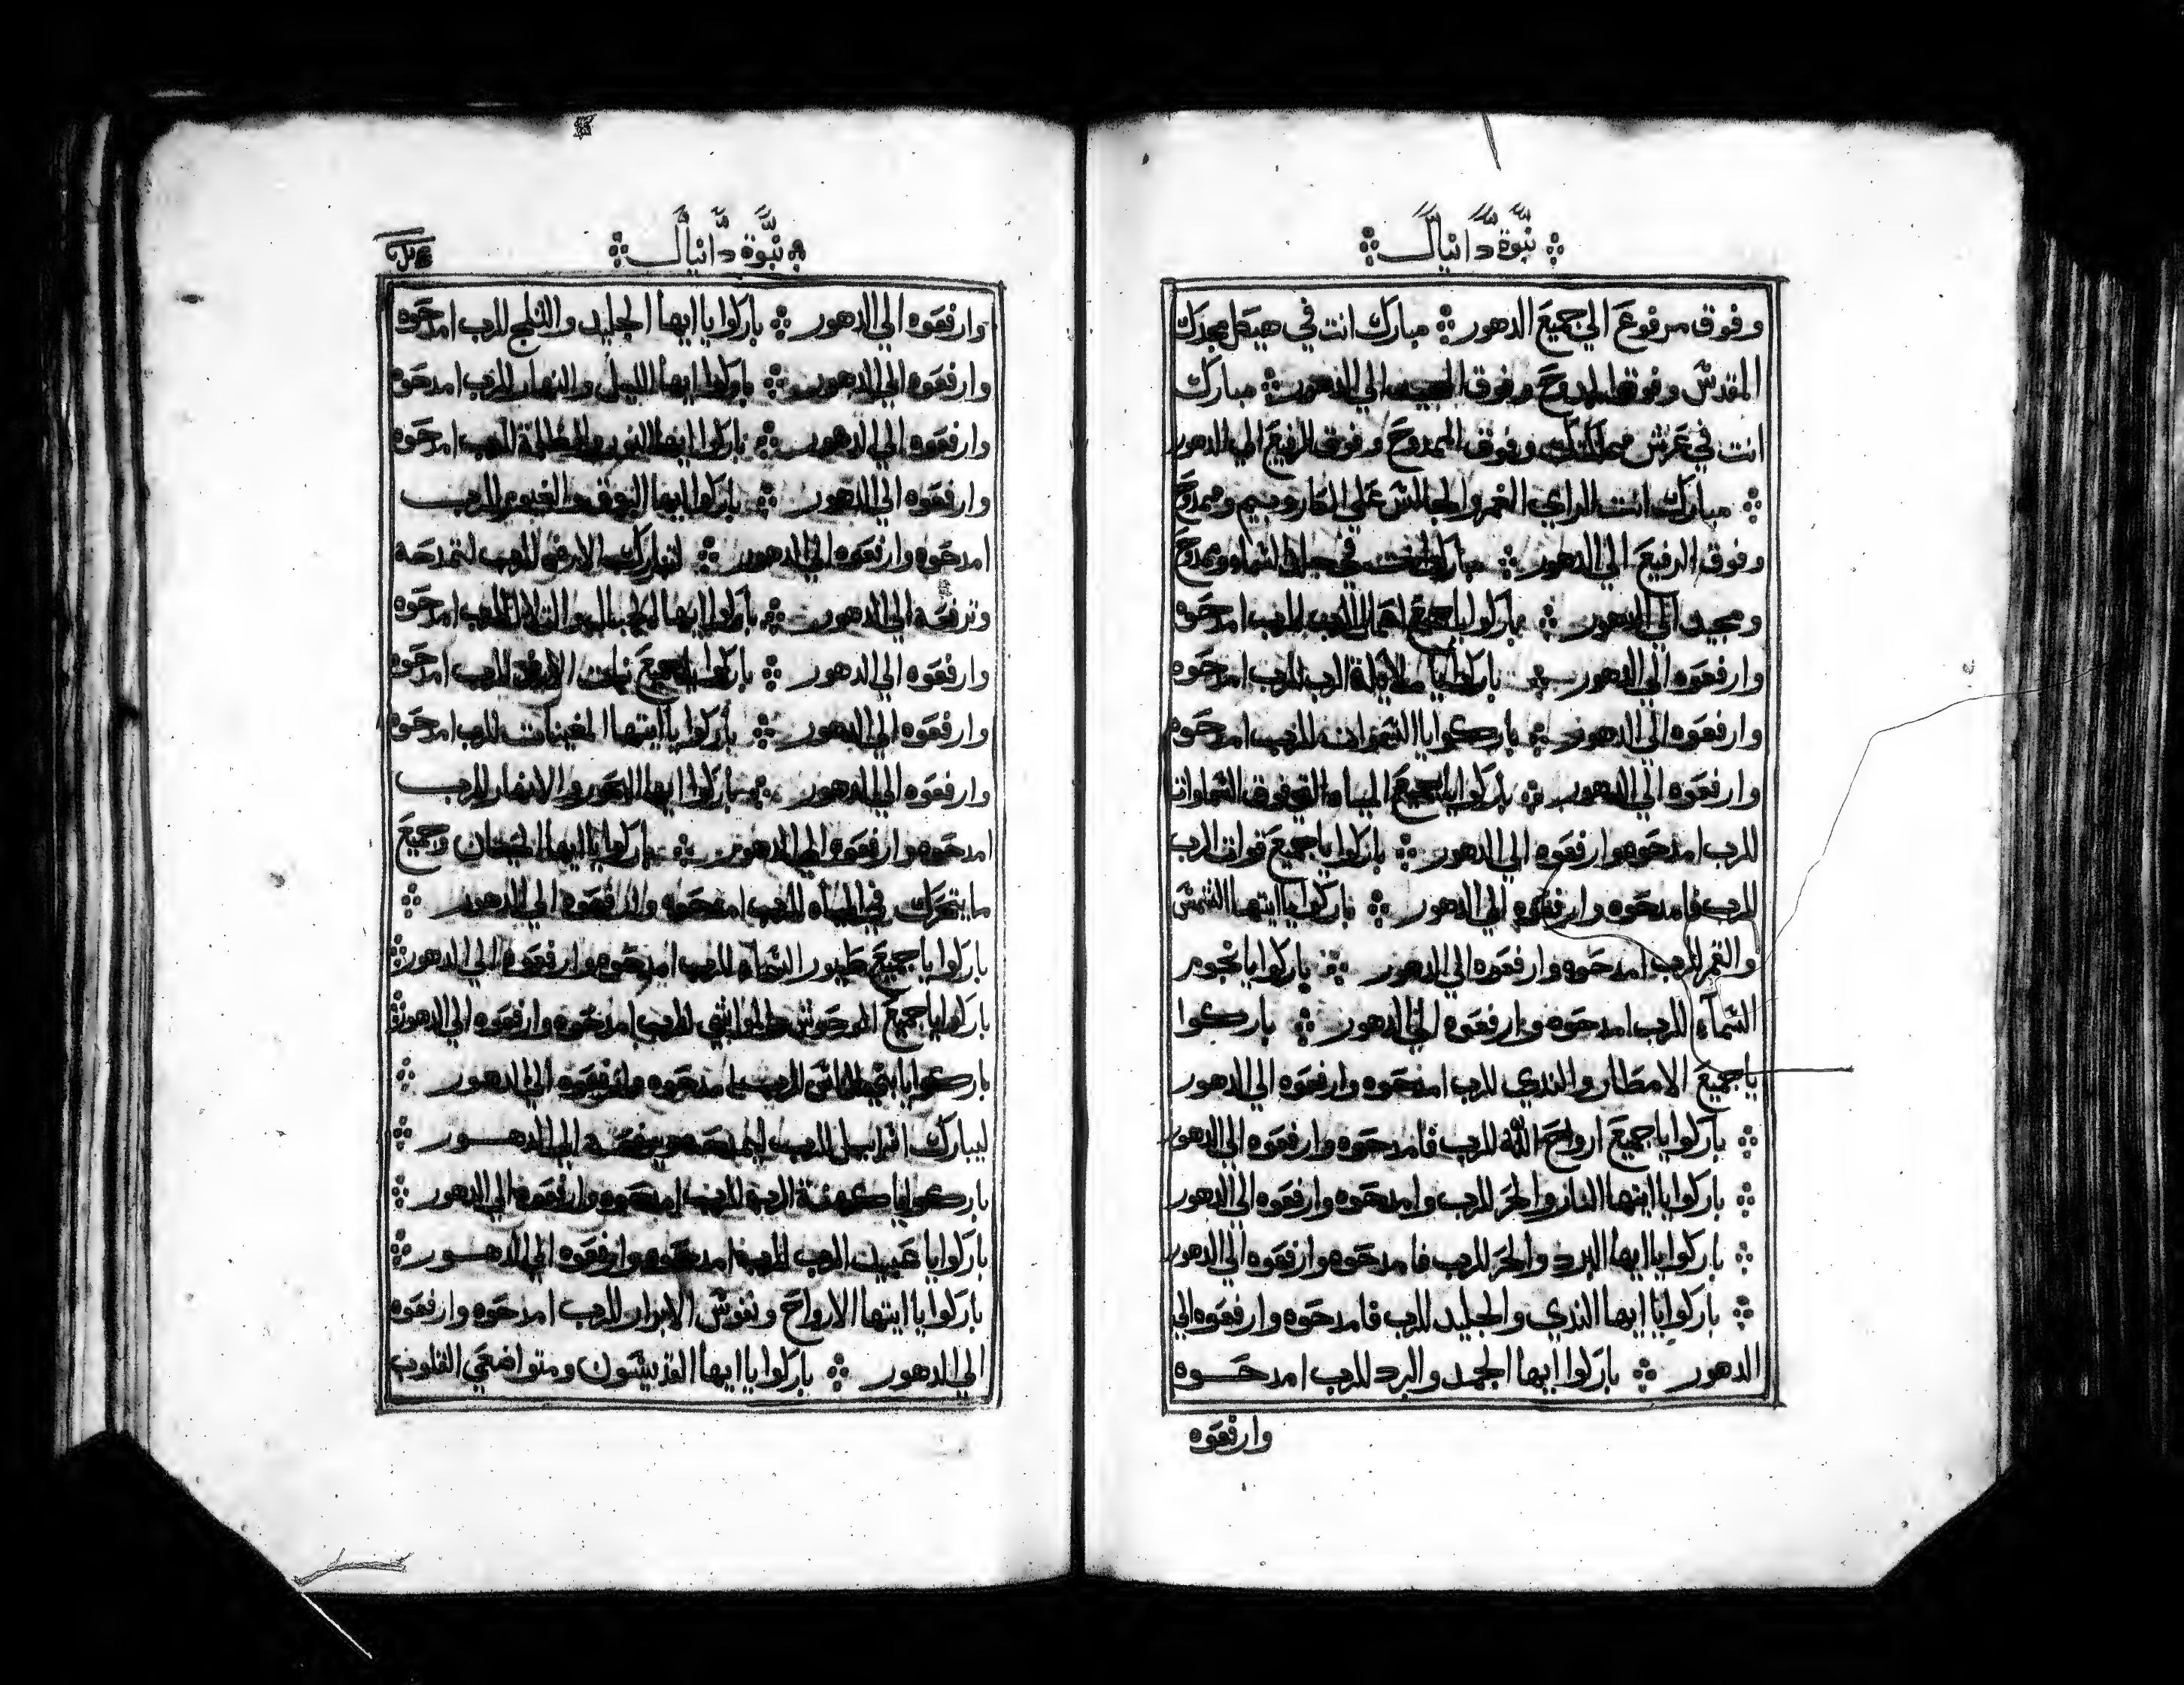 نبوة دانيال
وفوق مرفوع الي جميع الدهور مبارك انت في هيكل مجدك
المقدس وفوق الممدوح وفوق الي الدهور مبارك
انت في عرش مملكتك وفوق الممدوح وفوق الرفيع الي الدهور
مبارك انت الراي الغمر والجالس علي الكاروبيم وممدوح
وفوق الرفيع الي الدهور مبارك انت في جلد السماء وممدوح
ومجيد الي الدهور باركوا يا جميع اعمال الرب للرب امدحوه
وارفعوه الي الدهور باركوا يا ملايكة الرب للرب امدحوه
وارفعوه الي الدهور باركوا يا السموات للرب امدحوه
وارفعوه الي الدهور باركوا يا جميع المياه التي فوق السماوات
للرب امدحوه وارفعوه الي الدهور باركوا يا جميع قوات الرب
للرب فامدحوه وارفعوه الي الدهور باركوا يا ايتها الشمس
والقمر للرب امدحوه وارفعوه الي الدهور باركوا يا نجوم
السماء للرب امدحوه وارفعوه الي الدهور باركوا
يا جميع الامطار والندي للرب امدحوه وارفعوه الي الدهور
باركوا يا جميع ارواح الله للرب فامدحوه وارفعوه الي الدهور
باركوا يا ايتها النار والحر للرب وامدحوه وارفعوه الي الدهور
باركوا يا ايها البرد والحر للرب فامدحوه وارفعوه الي الدهور
باركوا يا ايها الندي والجليد للرب فامدحوه وارفعوه الي
الدهور باركوا ايها الجمد والبرد للرب امدحوه
وارفعوه
نبوة دانيال
وارفعوه الي الدهور باركوا يا ايها الجليد والثلج للرب امدحوه
وارفعوه الي الدهور باركوا ايها الليل والنهار للرب امدحوه
وارفعوه الي الدهور باركوا ايها النور والظلمة للرب امدحوه
وارفعوه الي الدهور باركوا ايها البروق والغيوم للرب
امدحوه وارفعوه الي الدهور لتبارك الارض للرب لتمدحه
وترفعه الي الدهور باركوا ايها الجبال والتلال للرب امدحوه
وارفعوه الي الدهور باركوا يا جميع نبات الارض للرب امدحوه
وارفعوه الي الدهور باركوا يا ايتها المغينات للرب امدحوه
وارفعوه الي الدهور باركوا ايها البحور والانهار للرب
امدحوه وارفعوه الي الدهور باركوا يا ايها الحيتان وجميع
ما يتحرك في المياه للرب امدحوه وارفعوه الي الدهور
باركوا يا جميع طيور السماء للرب امدحوه وارفعوه الي الدهور
باركوا يا جميع الوحوش والمواشي للرب امدحوه وارفعوه الي الدهور
باركوا يا بني الناس للرب امدحوه وارفعوه الي الدهور
ليبارك اسراييل للرب ليمدحه ويرفعه الي الدهور
باركوا يا كهنة الرب للرب امدحوه وارفعوه الي الدهور
باركوا يا عبيد الرب للرب امدحوه وارفعوه الي الدهور
باركوا يا ايتها الارواح ونفوس الابرار للرب امدحوه وارفعوه
الي الدهور باركوا يا ايها القديسون ومتواضعي القلوب